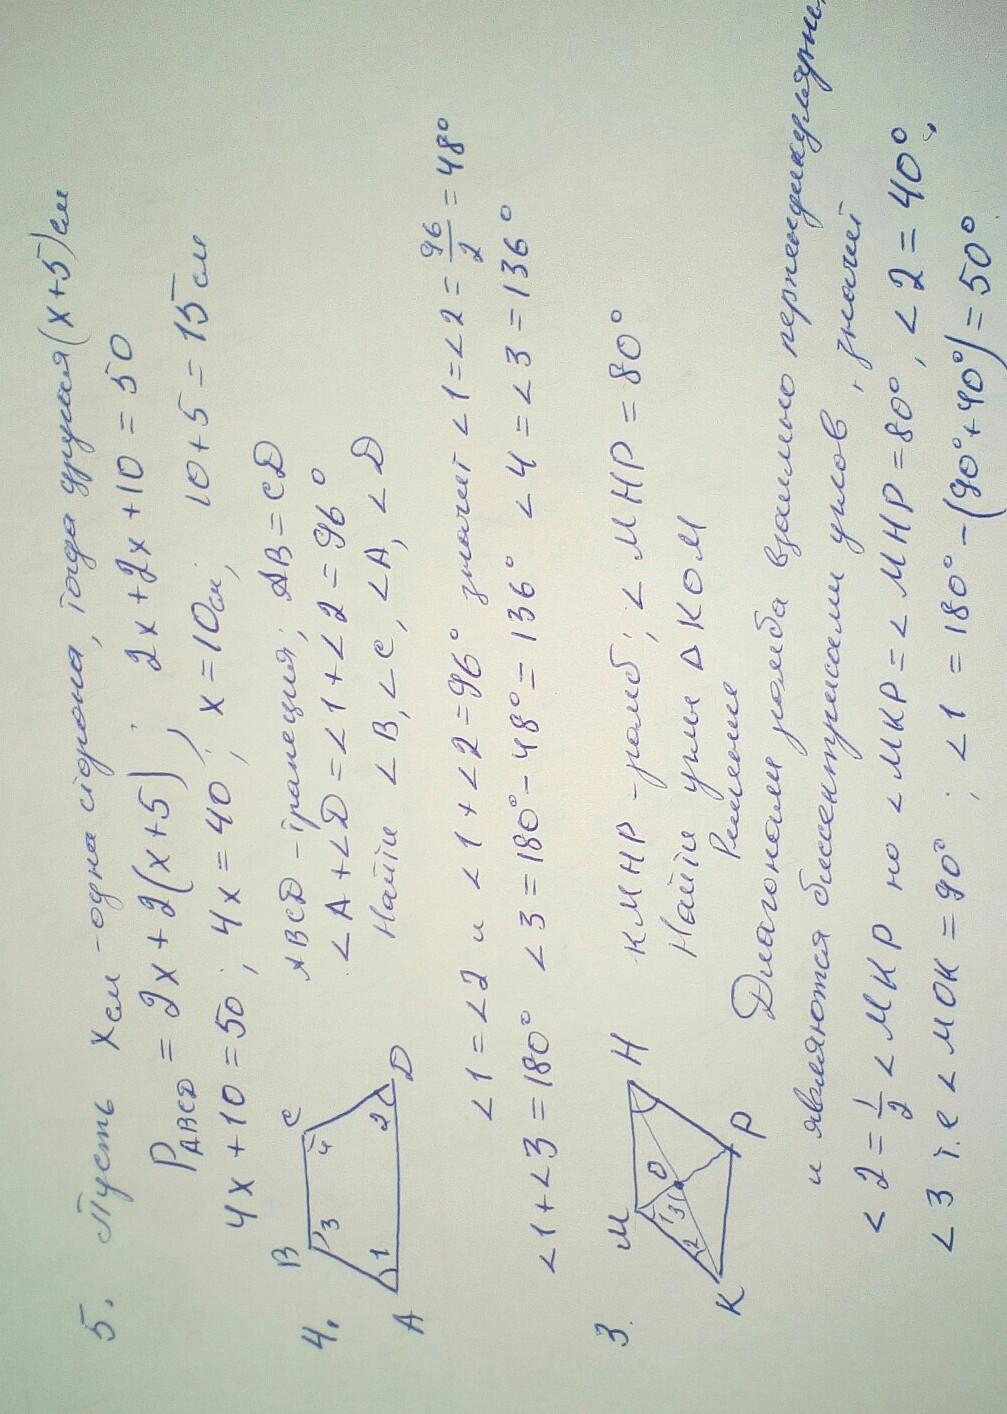 5. Пусть x см - одна сторона, тогда другая (x+5) см
P ABCD = 2x + 2(x+5); 2x + 2x + 10 = 50
4x + 10 = 50; 4x = 40; x = 10 см; 10 + 5 = 15 см
4. ABCD - трапеция; AB = CD
∠A + ∠D = ∠1 + ∠2 = 96°
Найти ∠B, ∠C, ∠A, ∠D
B C A D 1 2 3 4
∠1 = ∠2 и ∠1 + ∠2 = 96° значит ∠1 = ∠2 = 96/2 = 48°
∠1 + ∠3 = 180° ∠3 = 180° - 48° = 136° ∠4 = ∠3 = 136°
3. КМНР - ромб; ∠МНР = 80°
Найти углы △КОМ
Решение
М Н К Р О 1 2 3
Диагонали ромба взаимно перпендикулярны
и являются биссектрисами углов, значит
∠2 = 1/2 ∠МКР но ∠МКР = ∠МНР = 80°, ∠2 = 40°,
∠3 т.е ∠МОК = 90°; ∠1 = 180° - (90° + 40°) = 50°